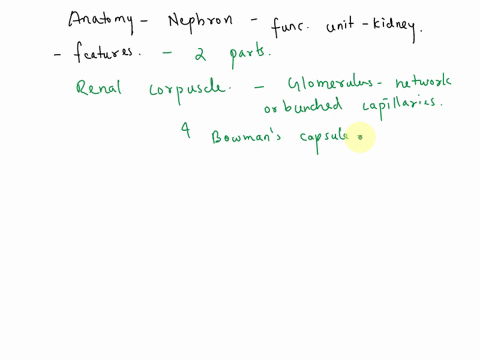 Anatomy - Nephron - func. unit - kidney.
- features. - 2 parts.
Renal corpuscle. - Glomerulus - network
or bunched capillaries.
4 Bowman's capsule